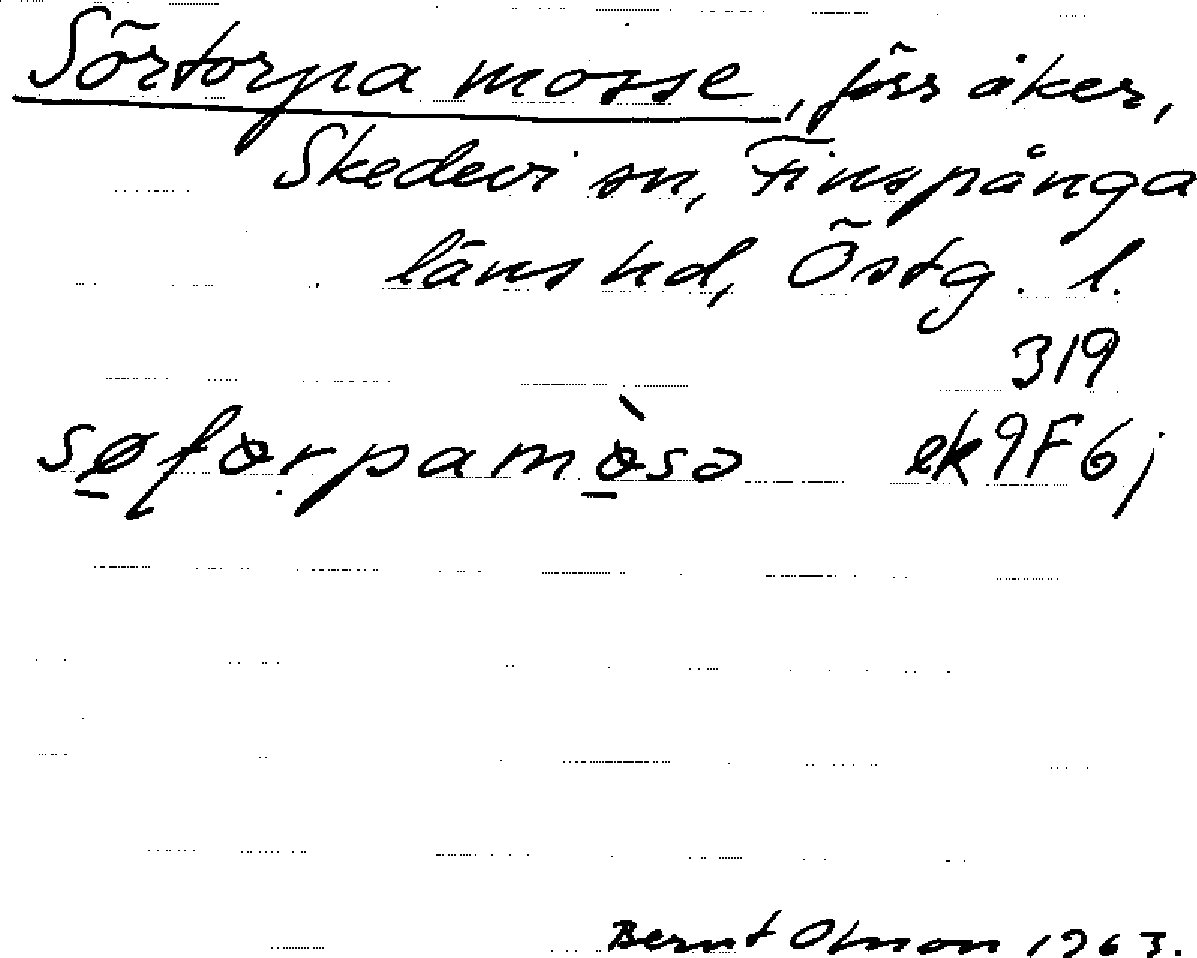 Sörtorpa mosse, förr åker,
Skedevi sn, Finspånga
läns hd, Östg. l.
319
ek 9F6j
Bernt Olsson 1963.